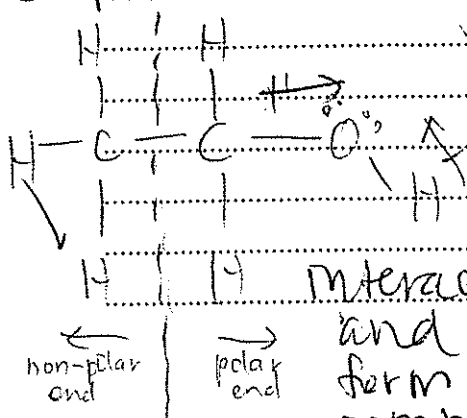 H H
H — C — C — O
H
H H interac
and
form
non-polar
end
polar
end